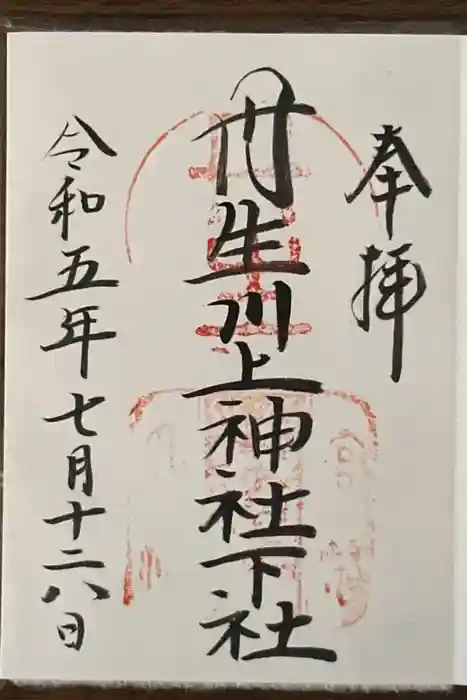 奉拝
丹生川上神社下社
令和五年七月十二八日